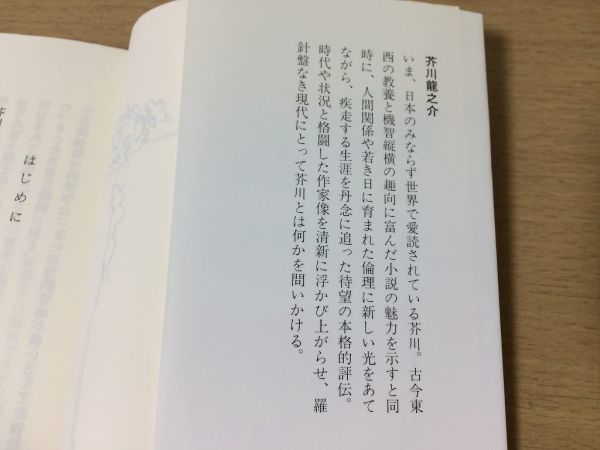 芥川龍之介
いま、日本のみならず世界で愛読されている芥川。古今東
西の教養と機智縦横の趣向に富んだ小説の魅力を示すと同
時に、人間関係や若き日に育まれた倫理に新しい光をあて
ながら、疾走する生涯を丹念に追った待望の本格的評伝。
時代や状況と格闘した作家像を清新に浮かび上がらせ、羅
針盤なき現代にとって芥川とは何かを問いかける。
はじめに